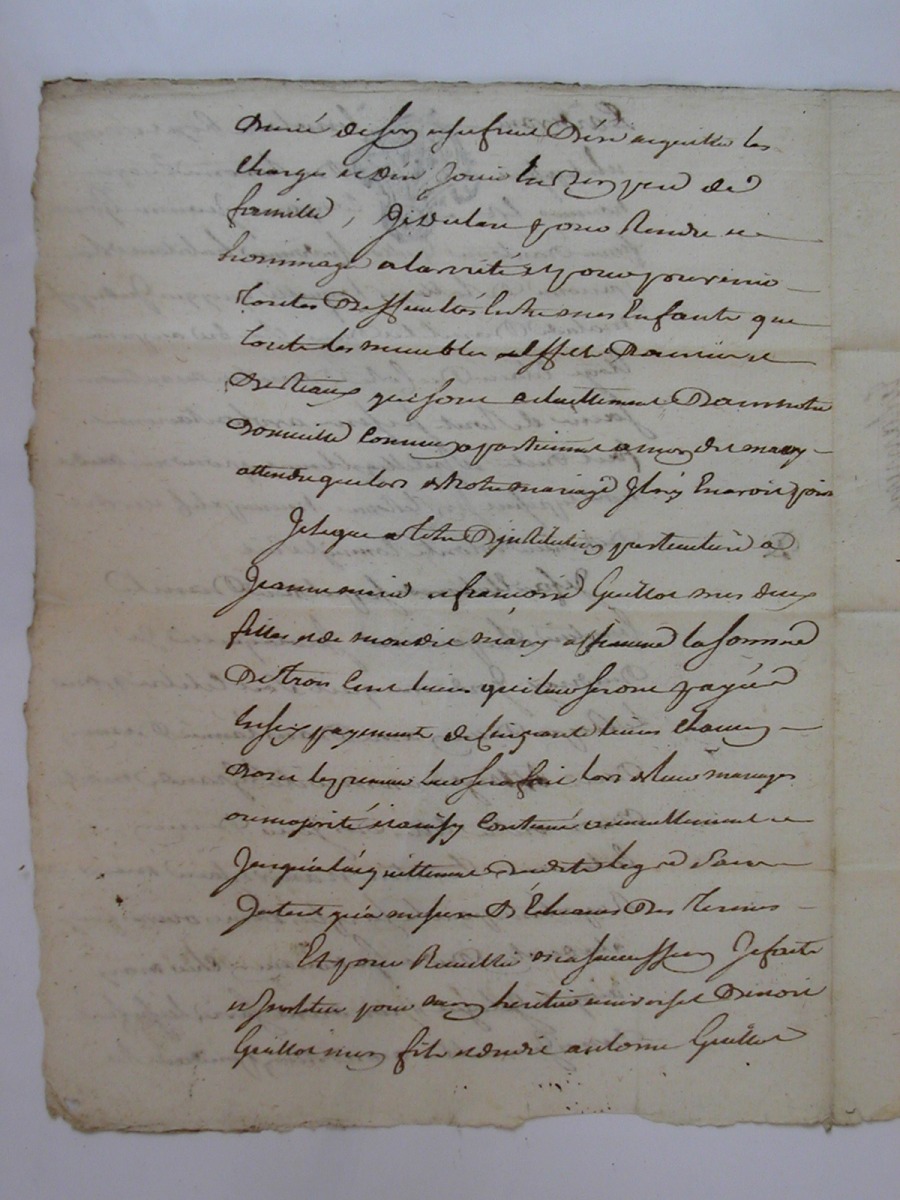 durée de son usufruit d'en acquitter les
charges et d'en jouir en bon pere de
famille, Je declare pour Rendre
hommage a la verité et pour prevenir
toutes difficultés Entre mes Enfants que
touts les meubles effets danrées et
bestiaux qui sont actuellement dans notre
domicille Commun apartiennent a mon dit mary
attendu que lors de notre mariage Je n'en avois point
Je legue a titre d'jnstitution particuliere a
Jeanne marie et françoise Guillot mes deux
filles et de mondit mary a chacune la somme
de trois Cent livres qui leur seront payée
en six payements de Cinquante livres chacun
dont le premier leur sera fait lors de leur mariages
ou majorité et ainsy Continué annuellement
Jusqu'a l'acquittement dudit legs sans
Jnterest qu'a mesure d'Echeances des termes
Et pour Recueillir ma succession Je fais
et Jnstitue pour mon heritier universel Benoit
Guillot mon fils et dudit antoine Guillot